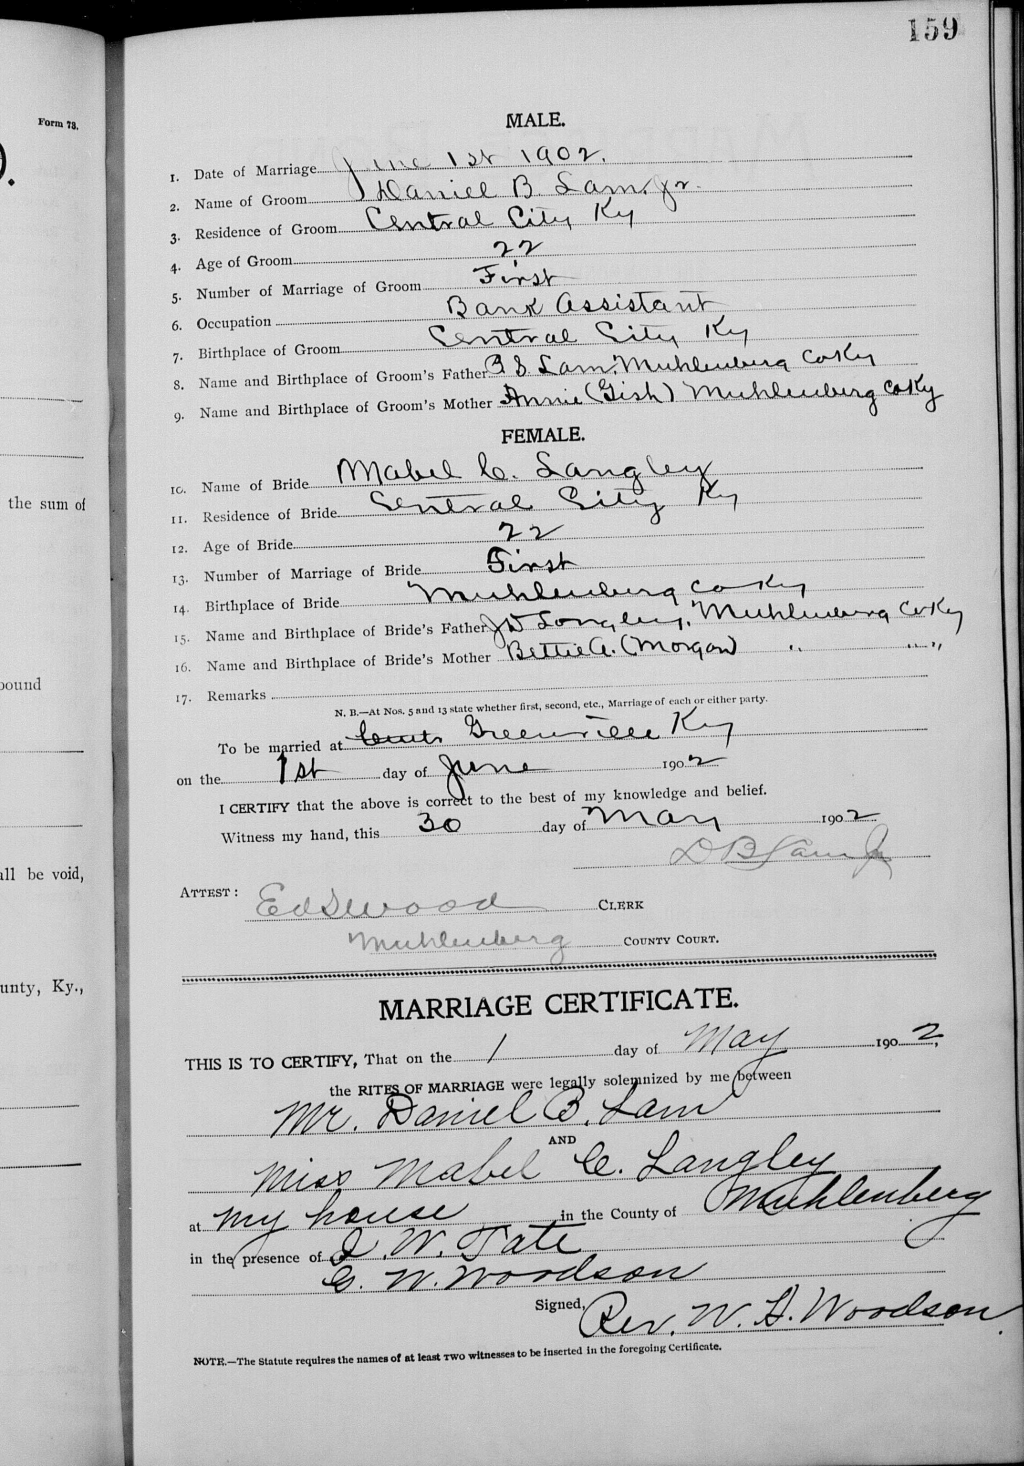 159
Form 73.
MALE.
1. Date of Marriage June 1st 1902.
2. Name of Groom Daniel B. Lam, Jr.
3. Residence of Groom Central City Ky
4. Age of Groom 22
5. Number of Marriage of Groom First
6. Occupation Bank Assistant
7. Birthplace of Groom Central City Ky
8. Name and Birthplace of Groom's Father Lam, Muhlenberg Co Ky
9. Name and Birthplace of Groom's Mother Annie (Gish) Muhlenberg Co Ky
FEMALE.
10. Name of Bride Mabel C. Langley
the sum of
11. Residence of Bride Central City Ky
12. Age of Bride 22
13. Number of Marriage of Bride First
14. Birthplace of Bride Muhlenberg Co Ky
15. Name and Birthplace of Bride's Father J D Langley, Muhlenberg Co Ky
16. Name and Birthplace of Bride's Mother Bettie A. (Morgan) " " "
17. Remarks
N. B.—At Nos. 5 and 13 state whether first, second, etc., Marriage of each or either party.
To be married at Greenville Ky
on the 1st day of June 1902
I CERTIFY that the above is correct to the best of my knowledge and belief.
Witness my hand, this 30 day of May 1902
D B Lam Jr
all be void,
ATTEST: Ed S Wood CLERK
Muhlenberg COUNTY COURT.
unty, Ky.,
MARRIAGE CERTIFICATE.
THIS IS TO CERTIFY, That on the 1 day of May 1902,
the RITES OF MARRIAGE were legally solemnized by me between
Mr. Daniel B. Lam
AND
Miss Mabel C. Langley
at my house in the County of Muhlenberg
in the presence of J. W. Tate
C. W. Woodson
Signed, Rev. W. H. Woodson.
NOTE.—The Statute requires the names of at least TWO witnesses to be inserted in the foregoing Certificate.